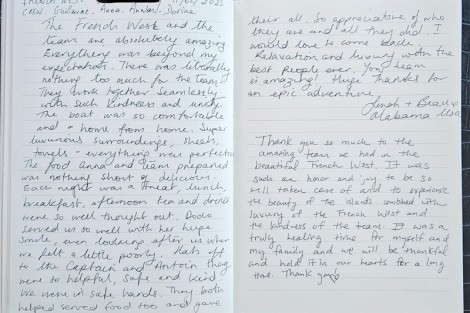 FRENCH WEST 11/04/2025
Crew: Guillaume. Anna. Antoin.
The French West and the
team are absolutely amazing
Everything was beyond my
expectation. There was literally
nothing too much for the team.
They work together seamlessly
with such kindness and unity.
The boat was so comfortable
and a home from home. Super
luxurious surroundings, sheets,
towels - everything was perfection
The food Anna and team prepared
was nothing short of delicious.
Each night was a treat, lunch,
breakfast, afternoon tea and drinks
were so well thought out. Dodo
served us so well with her huge
smile, even looking after us when
we felt a little poorly. Hats off
to the Captain and Antoin they
were to helpful, safe and kind
We were in safe hands. They both
helped served food too and gave
their all. So appreciative of who
they are and all they did. I
would love to come back.
Relaxation and luxury with the
best people ever. Your team
is amazing! Huge thanks for
an epic adventure.
+
Alabama USA
Thank you so much to the
amazing team we had on the
beautiful French West. It was
such an honor and joy to be so
well taken care of and to experience
the beauty of the islands combined with
luxury of the French West and
the kindness of the team. It was a
truly healing time for myself and
my family and we will be thankful
and hold it in our hearts for a long
time. Thank you